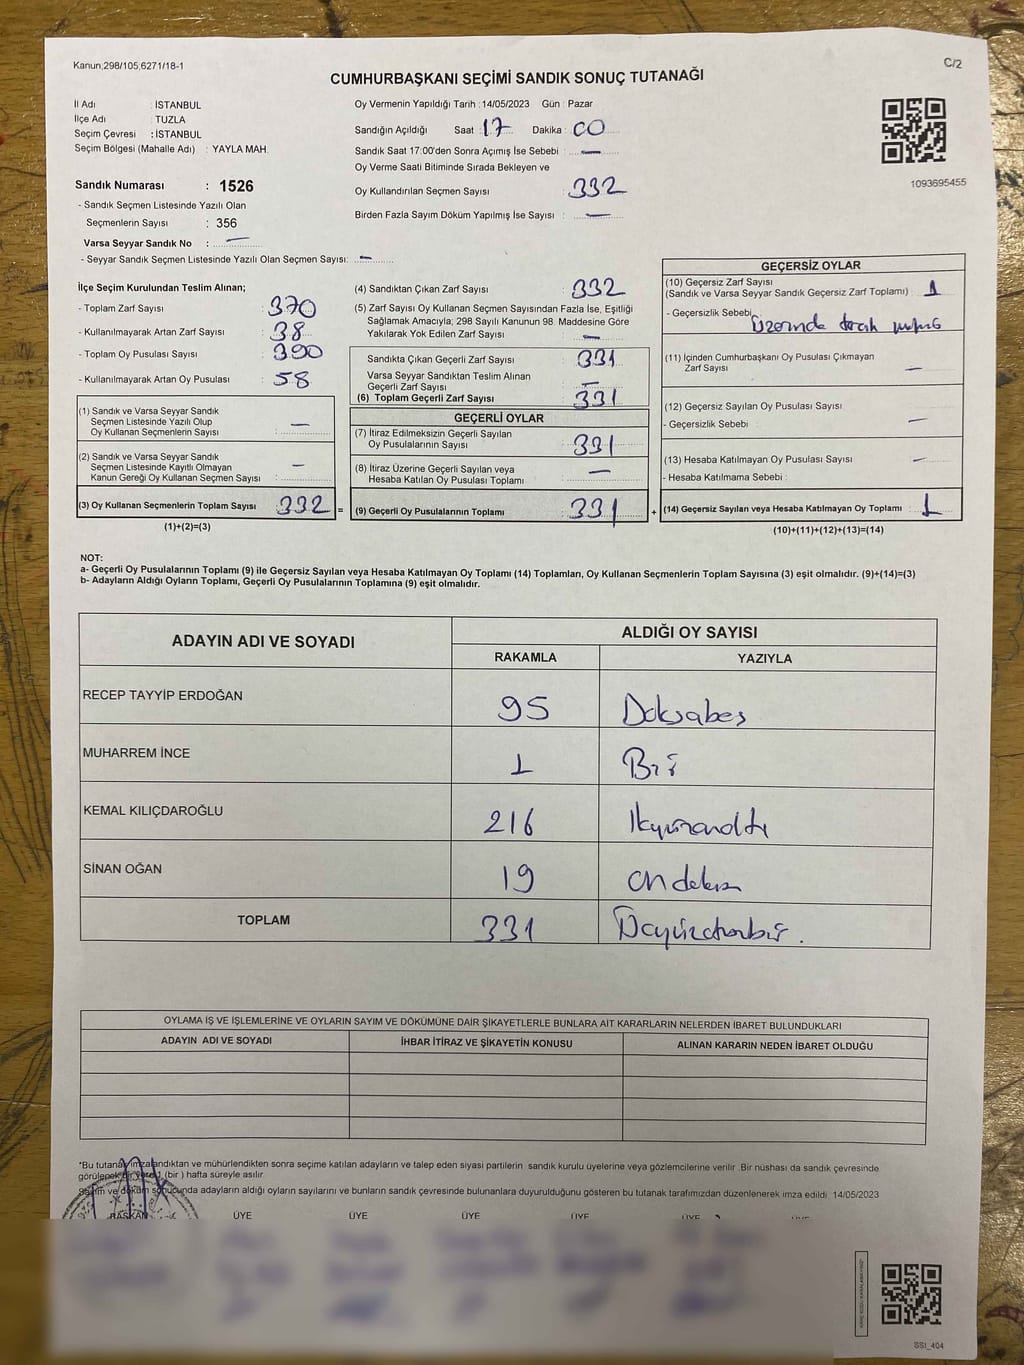 Kanun;298/105;6271/18-1
C/2
CUMHURBAŞKANI SEÇİMİ SANDIK SONUÇ TUTANAĞI
İl Adı : İSTANBUL
İlçe Adı : TUZLA
Seçim Çevresi : İSTANBUL
Seçim Bölgesi (Mahalle Adı) : YAYLA MAH.
Oy Vermenin Yapıldığı Tarih : 14/05/2023 Gün : Pazar
Sandığın Açıldığı Saat : 17 Dakika : 00
Sandık Saat 17:00'den Sonra Açımış İse Sebebi : —
Oy Verme Saati Bitiminde Sırada Bekleyen ve
Oy Kullandırılan Seçmen Sayısı : 332
Birden Fazla Sayım Döküm Yapılmış İse Sayısı : —
1093695455
Sandık Numarası : 1526
- Sandık Seçmen Listesinde Yazılı Olan
Seçmenlerin Sayısı : 356
Varsa Seyyar Sandık No : —
- Seyyar Sandık Seçmen Listesinde Yazılı Olan Seçmen Sayısı: —
İlçe Seçim Kurulundan Teslim Alınan;
- Toplam Zarf Sayısı : 370
- Kullanılmayarak Artan Zarf Sayısı : 38
- Toplam Oy Pusulası Sayısı : 390
- Kullanılmayarak Artan Oy Pusulası : 58
(1) Sandık ve Varsa Seyyar Sandık
Seçmen Listesinde Yazılı Olup
Oy Kullanan Seçmenlerin Sayısı : —
(2) Sandık ve Varsa Seyyar Sandık
Seçmen Listesinde Kayıtlı Olmayan
Kanun Gereği Oy Kullanan Seçmen Sayısı : —
(3) Oy Kullanan Seçmenlerin Toplam Sayısı : 332 =
(1)+(2)=(3)
(4) Sandıktan Çıkan Zarf Sayısı : 332
(5) Zarf Sayısı Oy Kullanan Seçmen Sayısından Fazla İse, Eşitliği
Sağlamak Amacıyla; 298 Sayılı Kanunun 98. Maddesine Göre
Yakılarak Yok Edilen Zarf Sayısı : —
Sandıkta Çıkan Geçerli Zarf Sayısı : 331
Varsa Seyyar Sandıktan Teslim Alınan
Geçerli Zarf Sayısı : —
(6) Toplam Geçerli Zarf Sayısı : 331
GEÇERLİ OYLAR
(7) İtiraz Edilmeksizin Geçerli Sayılan
Oy Pusulalarının Sayısı : 331
(8) İtiraz Üzerine Geçerli Sayılan veya
Hesaba Katılan Oy Pusulası Toplamı : —
(9) Geçerli Oy Pusulalarının Toplamı : 331 +
GEÇERSİZ OYLAR
(10) Geçersiz Zarf Sayısı
(Sandık ve Varsa Seyyar Sandık Geçersiz Zarf Toplamı) : 1
- Geçersizlik Sebebi Üzerinde
(11) İçinden Cumhurbaşkanı Oy Pusulası Çıkmayan
Zarf Sayısı : —
(12) Geçersiz Sayılan Oy Pusulası Sayısı :
- Geçersizlik Sebebi : —
(13) Hesaba Katılmayan Oy Pusulası Sayısı : —
- Hesaba Katılmama Sebebi :
(14) Geçersiz Sayılan veya Hesaba Katılmayan Oy Toplamı : 1
(10)+(11)+(12)+(13)=(14)
NOT:
a- Geçerli Oy Pusulalarının Toplamı (9) ile Geçersiz Sayılan veya Hesaba Katılmayan Oy Toplamı (14) Toplamları, Oy Kullanan Seçmenlerin Toplam Sayısına (3) eşit olmalıdır. (9)+(14)=(3)
b- Adayların Aldığı Oyların Toplamı, Geçerli Oy Pusulalarının Toplamına (9) eşit olmalıdır.
ADAYIN ADI VE SOYADI ALDIĞI OY SAYISI
RAKAMLA YAZIYLA
RECEP TAYYİP ERDOĞAN 95 Doksabeş
MUHARREM İNCE 1 Bir
KEMAL KILIÇDAROĞLU 216 Ikyüzonaltı
SİNAN OĞAN 19
TOPLAM 331
OYLAMA İŞ VE İŞLEMLERİNE VE OYLARIN SAYIM VE DÖKÜMÜNE DAİR ŞİKAYETLERLE BUNLARA AİT KARARLARIN NELERDEN İBARET BULUNDUKLARI
ADAYIN ADI VE SOYADI İHBAR İTİRAZ VE ŞİKAYETİN KONUSU ALINAN KARARIN NEDEN İBARET OLDUĞU
*Bu tutanak imzalandıktan ve mühürlendikten sonra seçime katılan adayların ve talep eden siyasi partilerin sandık kurulu üyelerine veya gözlemcilerine verilir. Bir nüshası da sandık çevresinde
görülepek bir yere 1 (bir) hafta süreyle asılır
Sayım ve döküm sonucunda adayların aldığı oyların sayılarını ve bunların sandık çevresinde bulunanlara duyurulduğunu gösteren bu tutanak tarafımızdan düzenlenerek imza edildi. 14/05/2023
BAŞKAN ÜYE ÜYE ÜYE ÜYE ÜYE ÜYE
SS1_404